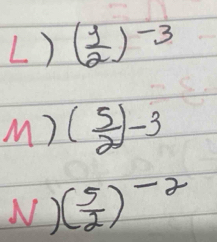 L) (1/2)^-3
M) (5/2)-3
N) (5/2)^-2